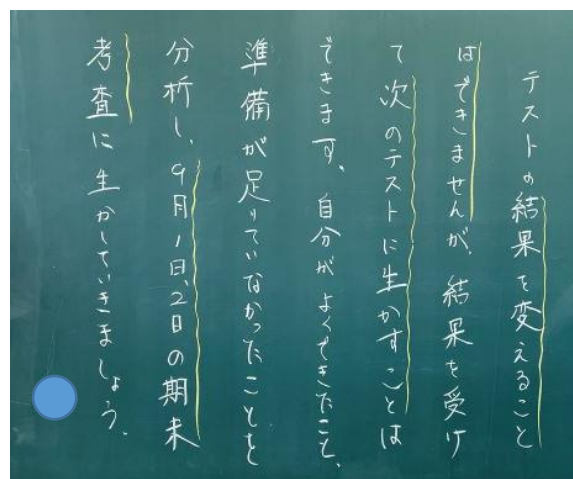 テストの結果を変えること
はできませんが、結果を受け
て次のテストに生かすことは
できます。自分がよくできたこと、
準備が足りていなかったことを
分析し、9月1日、2日の期末
考査に生かしていきましょう。